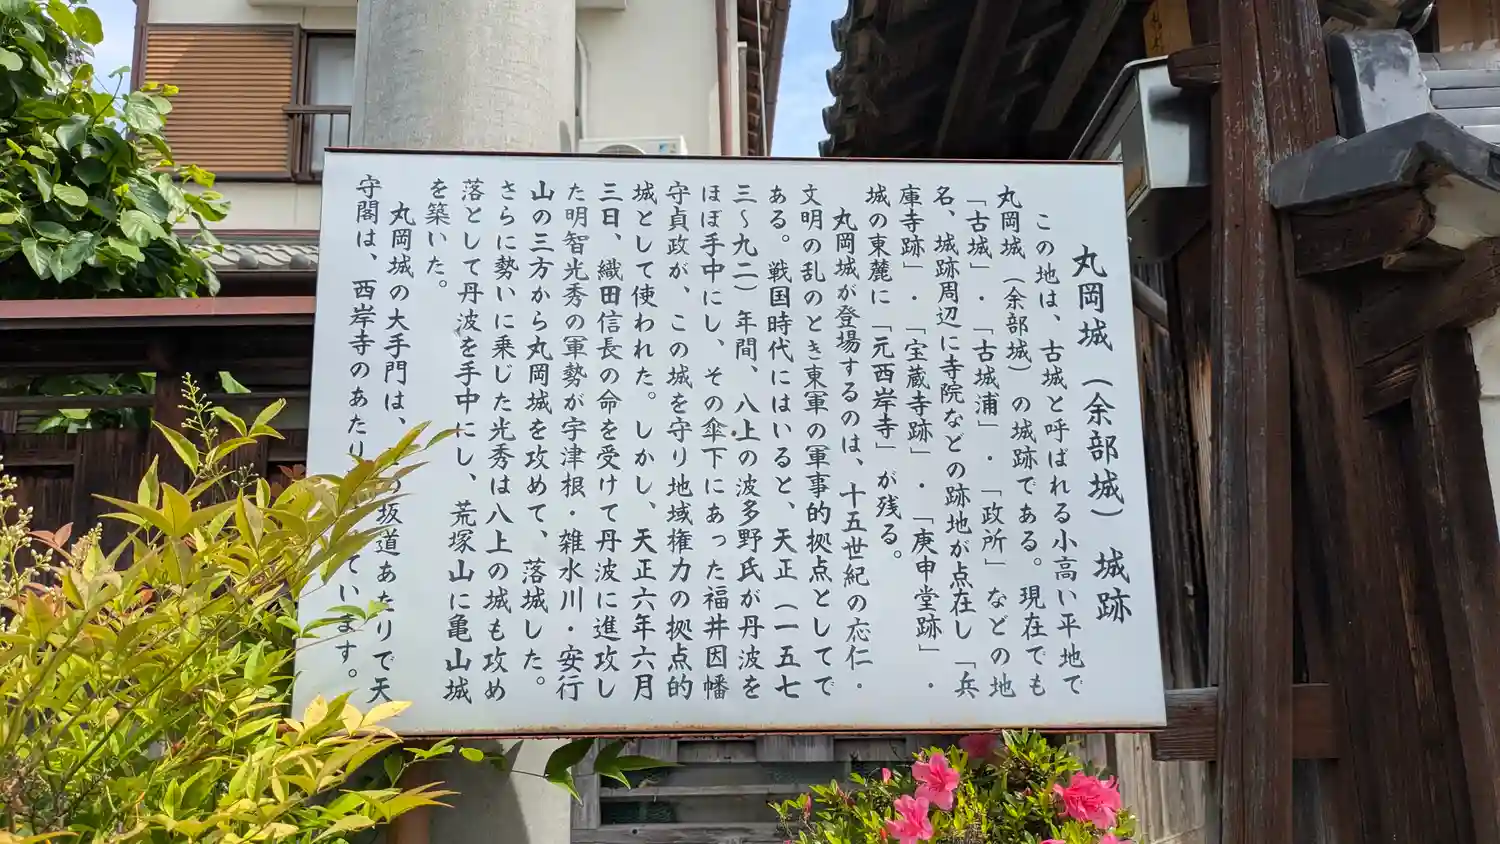 丸岡城（余部城）城跡
この地は、古城と呼ばれる小高い平地で
丸岡城（余部城）の城跡である。現在でも
「古城」・「古城浦」・「政所」などの地
名、城跡周辺に寺院などの跡地が点在し「兵
庫寺跡」・「宝蔵寺跡」・「庚申堂跡」・
城の東麓に「元西岸寺」が残る。
丸岡城が登場するのは、十五世紀の応仁・
文明の乱のとき東軍の軍事的拠点としてで
ある。戦国時代にはいると、天正（一五七
三～九二）年間、八上の波多野氏が丹波を
ほぼ手中にし、その傘下にあった福井因幡
守貞政が、この城を守り地域権力の拠点的
城として使われた。しかし、天正六年六月
三日、織田信長の命を受けて丹波に進攻し
た明智光秀の軍勢が宇津根・雑水川・安行
山の三方から丸岡城を攻めて、落城した。
さらに勢いに乗じた光秀は八上の城も攻め
落として丹波を手中にし、荒塚山に亀山城
を築いた。
丸岡城の大手門は、の坂道あたりで天
守閣は、西岸寺のあたりています。